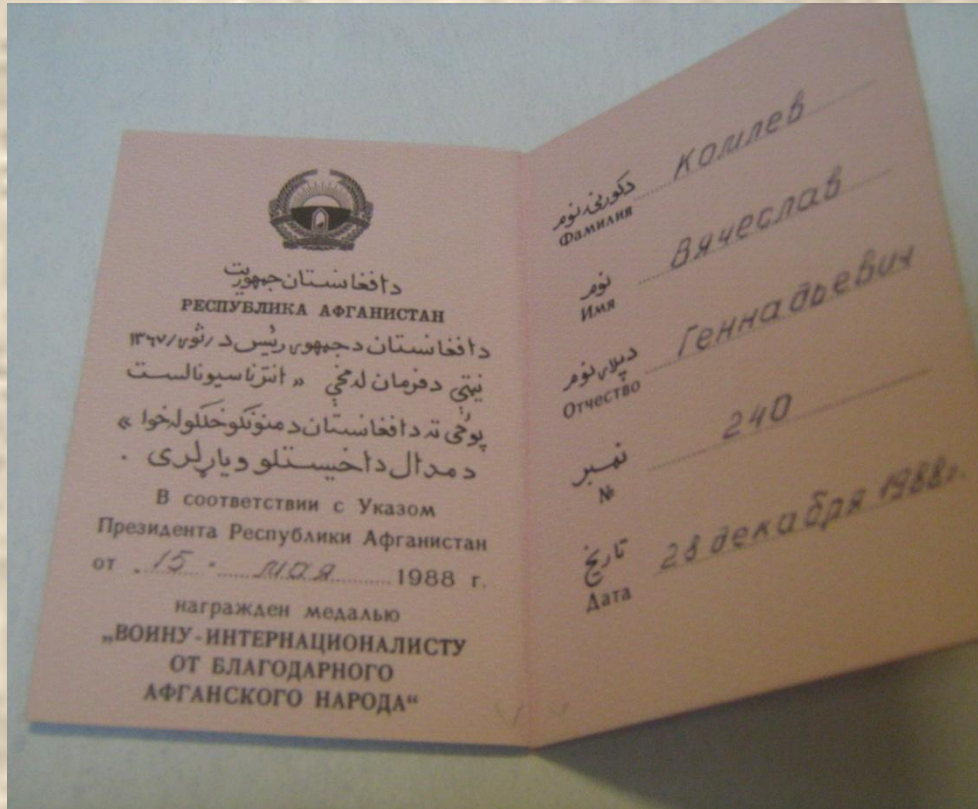 دافغانستان جمهوریت
РЕСПУБЛИКА АФГАНИСТАН
دافغانستان د جمهوری رئیس د / ثور / ۱۳۶۷
نیټې د فرمان له مخې « انترناسیونالست
پوځی ته د افغانستان د منونکو خلکو لخوا »
د مدال د اخیستلو ویاړ لری .
В соответствии с Указом
Президента Республики Афганистан
от 15 мая 1988 г.
награжден медалью
„ВОИНУ-ИНТЕРНАЦИОНАЛИСТУ
ОТ БЛАГОДАРНОГО
АФГАНСКОГО НАРОДА“
دکورنۍ نوم
Фамилия Комлев
نوم
Имя Вячеслав
دپلار نوم
Отчество Геннадьевич
نمبر
№ 240
تاریخ
Дата 28 декабря 1988г.